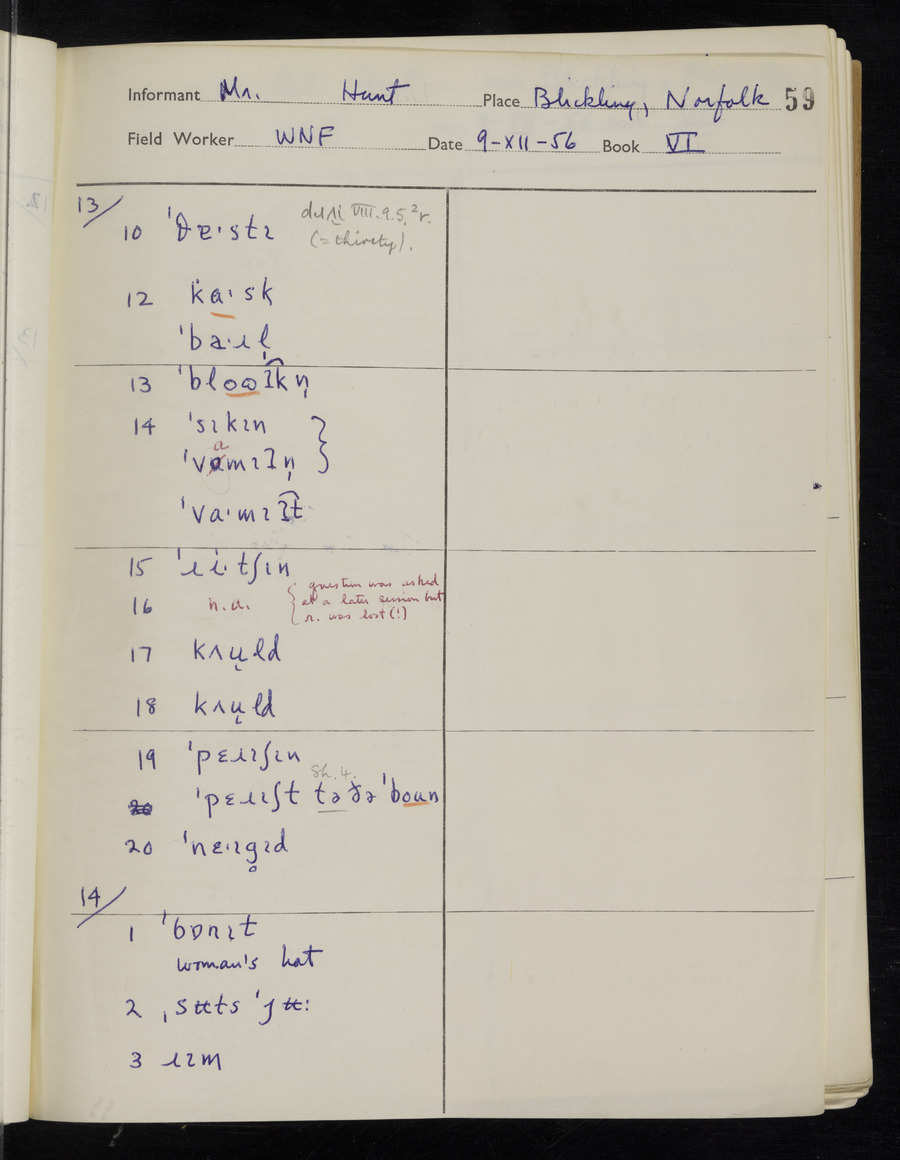 Informant Mr. Hunt Place Blickling, Norfolk 59
Field Worker WNF Date 9-XII-56 Book VI
13/
10 ˈθɐˑstɪ
VIII.9.5, ²r.
(= thirsty).
12 kaˑsk
ˈbaˑɪl̩
13
14 ˈsɪkɪn }
ˈvamɪʔn̩
ˈvaˑmɪʔt
15 ˈɹiˑtʃɪn
16 n.a. { question was asked
at a later session but
r. was lost (!)
17 kʌu̞ld
18 kʌu̞ld
19 ˈpɛɹɪʃɪn
ˈpɛɹɪʃt tə ðə ˈboun
Sh. 4.
20 ˈnɛˑɪg̊ɪd
14/
1 ˈbɒnɪt
woman's hat
2 ˌsʉts ˈjʉː
3 ɹɪm